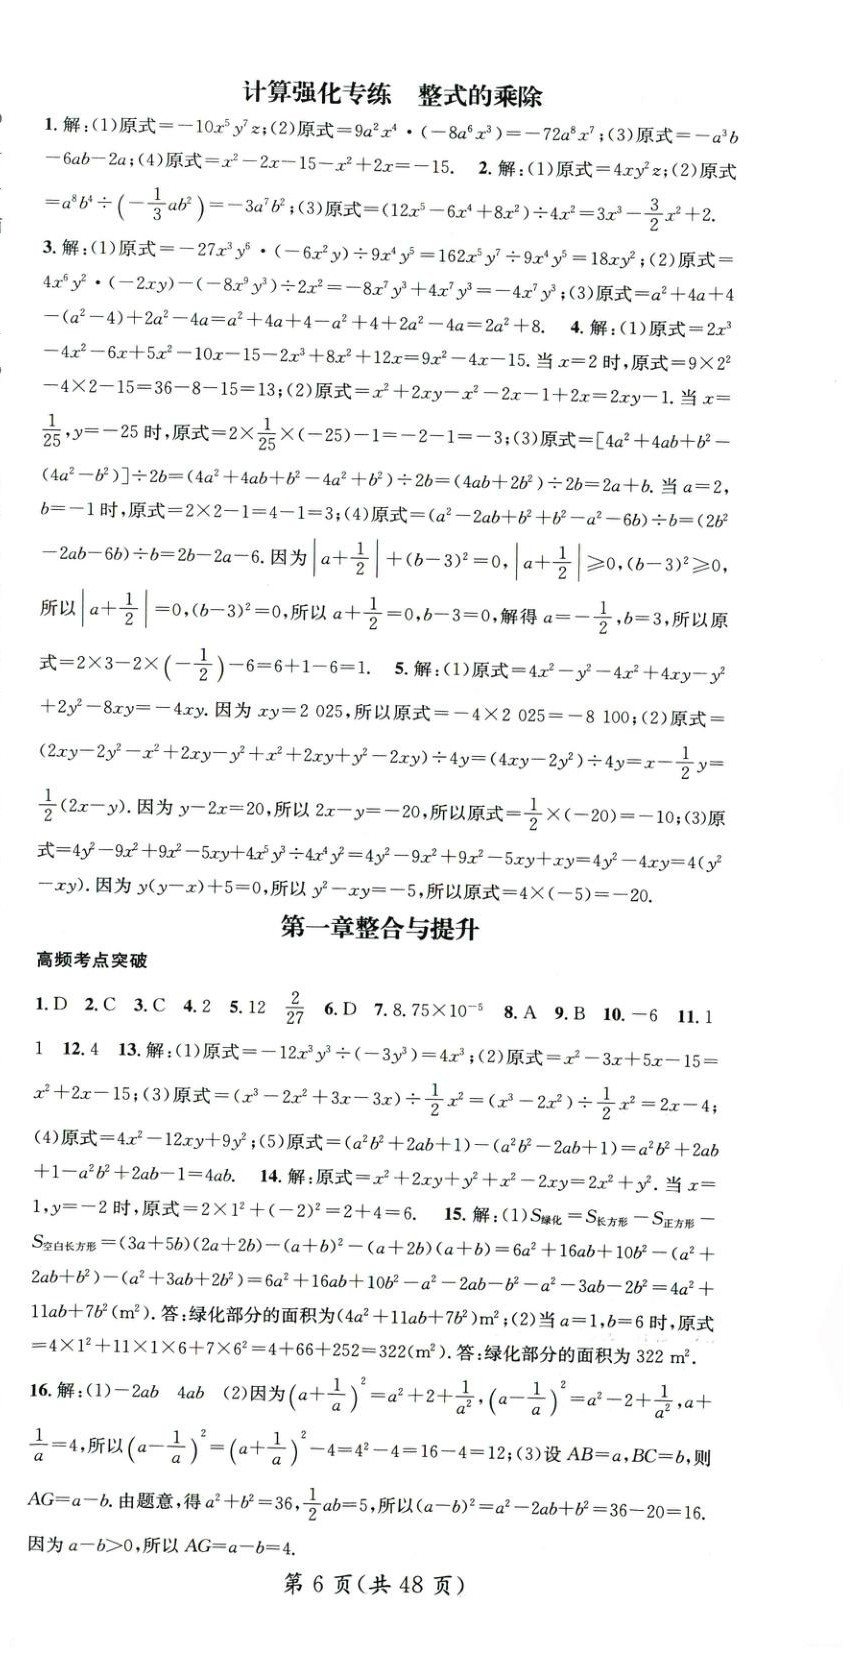 计算强化专练　整式的乘除
1. 解:(1)原式=-10x⁵y⁷z;(2)原式=9a²x⁴·(-8a⁶x³)=-72a⁸x⁷;(3)原式=-a³b
-6ab-2a;(4)原式=x²-2x-15-x²+2x=-15. 2. 解:(1)原式=4xy²z;(2)原式
=a⁸b⁴÷(-1/3ab²)=-3a⁷b²;(3)原式=(12x⁵-6x⁴+8x²)÷4x²=3x³-3/2x²+2.
3. 解:(1)原式=-27x³y⁶·(-6x²y)÷9x⁴y⁵=162x⁵y⁷÷9x⁴y⁵=18xy²;(2)原式=
4x⁶y²·(-2xy)-(-8x⁹y³)÷2x²=-8x⁷y³+4x⁷y³=-4x⁷y³;(3)原式=a²+4a+4
-(a²-4)+2a²-4a=a²+4a+4-a²+4+2a²-4a=2a²+8. 4. 解:(1)原式=2x³
-4x²-6x+5x²-10x-15-2x³+8x²+12x=9x²-4x-15. 当 x=2 时,原式=9×2²
-4×2-15=36-8-15=13;(2)原式=x²+2xy-x²-2x-1+2x=2xy-1. 当 x=
1/25,y=-25 时,原式=2×1/25×(-25)-1=-2-1=-3;(3)原式=[4a²+4ab+b²-
(4a²-b²)]÷2b=(4a²+4ab+b²-4a²+b²)÷2b=(4ab+2b²)÷2b=2a+b. 当 a=2,
b=-1 时,原式=2×2-1=4-1=3;(4)原式=(a²-2ab+b²+b²-a²-6b)÷b=(2b²
-2ab-6b)÷b=2b-2a-6. 因为|a+1/2|+(b-3)²=0,|a+1/2|≥0,(b-3)²≥0,
所以|a+1/2|=0,(b-3)²=0,所以 a+1/2=0,b-3=0,解得 a=-1/2,b=3,所以原
式=2×3-2×(-1/2)-6=6+1-6=1. 5. 解:(1)原式=4x²-y²-4x²+4xy-y²
+2y²-8xy=-4xy. 因为 xy=2 025,所以原式=-4×2 025=-8 100;(2)原式=
(2xy-2y²-x²+2xy-y²+x²+2xy+y²-2xy)÷4y=(4xy-2y²)÷4y=x-1/2y=
1/2(2x-y). 因为 y-2x=20,所以 2x-y=-20,所以原式=1/2×(-20)=-10;(3)原
式=4y²-9x²+9x²-5xy+4x⁵y³÷4x⁴y²=4y²-9x²+9x²-5xy+xy=4y²-4xy=4(y²
-xy). 因为 y(y-x)+5=0,所以 y²-xy=-5,所以原式=4×(-5)=-20.
第一章整合与提升
高频考点突破
1. D 2. C 3. C 4. 2 5. 12 2/27 6. D 7. 8.75×10⁻⁵ 8. A 9. B 10. -6 11. 1
1 12. 4 13. 解:(1)原式=-12x³y³÷(-3y³)=4x³;(2)原式=x²-3x+5x-15=
x²+2x-15;(3)原式=(x³-2x²+3x-3x)÷1/2x²=(x³-2x²)÷1/2x²=2x-4;
(4)原式=4x²-12xy+9y²;(5)原式=(a²b²+2ab+1)-(a²b²-2ab+1)=a²b²+2ab
+1-a²b²+2ab-1=4ab. 14. 解:原式=x²+2xy+y²+x²-2xy=2x²+y². 当 x=
1,y=-2 时,原式=2×1²+(-2)²=2+4=6. 15. 解:(1)S绿化=S长方形-S正方形-
S空白长方形=(3a+5b)(2a+2b)-(a+b)²-(a+2b)(a+b)=6a²+16ab+10b²-(a²+
2ab+b²)-(a²+3ab+2b²)=6a²+16ab+10b²-a²-2ab-b²-a²-3ab-2b²=4a²+
11ab+7b²(m²). 答:绿化部分的面积为(4a²+11ab+7b²)m²;(2)当 a=1,b=6 时,原式
=4×1²+11×1×6+7×6²=4+66+252=322(m²). 答:绿化部分的面积为 322 m².
16. 解:(1)-2ab 4ab (2)因为(a+1/a)²=a²+2+1/a²,(a-1/a)²=a²-2+1/a²,a+
1/a=4,所以(a-1/a)²=(a+1/a)²-4=4²-4=16-4=12;(3)设 AB=a,BC=b,则
AG=a-b. 由题意,得 a²+b²=36,1/2ab=5,所以(a-b)²=a²-2ab+b²=36-20=16.
因为 a-b>0,所以 AG=a-b=4.
第 6 页(共 48 页)